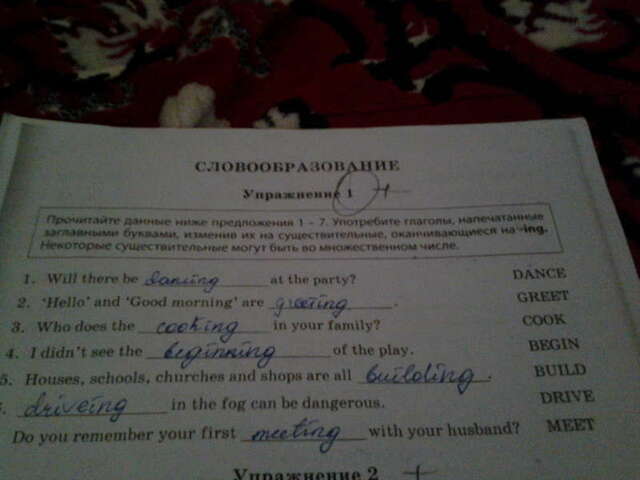 СЛОВООБРАЗОВАНИЕ
Упражнение 1 +
Прочитайте данные ниже предложения 1 – 7. Употребите глаголы, напечатанные
заглавными буквами, изменив их на существительные, оканчивающиеся на -ing.
Некоторые существительные могут быть во множественном числе.
1. Will there be dancing at the party? DANCE
2. ‘Hello’ and ‘Good morning’ are greeting. GREET
3. Who does the cooking in your family? COOK
4. I didn’t see the beginning of the play. BEGIN
5. Houses, schools, churches and shops are all building. BUILD
driveing in the fog can be dangerous. DRIVE
Do you remember your first meeting with your husband? MEET
Упражнение 2 +